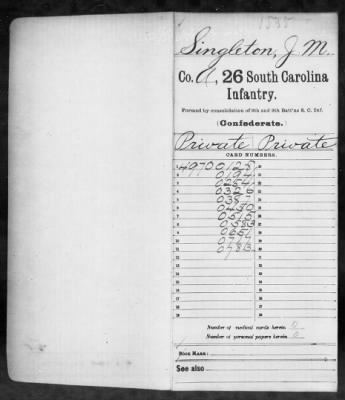 1535
Singleton, J. M.
Co. A, 26 South Carolina
Infantry.
Formed by consolidation of 9th and 6th Batt'ns S. C. Inf.
(Confederate.)
Private Private
CARD NUMBERS.
1 49700125
2 0194
3 0254
4 0326
5 0387
6 0450
7 0515
8 0583
9 0651
10
11 0783
12
13
14
15
16
17
18
Number of medical cards herein 0
Number of personal papers herein 0
BOOK MARK:
See also